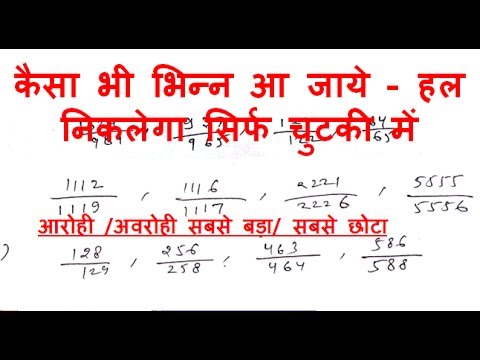 कैसा भी भिन्न आ जाये - हल
निकलेगा सिर्फ चुटकी में
1112/1119 , 1116/1117 , 2221/2226 , 5555/5556
आरोही /अवरोही सबसे बड़ा/ सबसे छोटा
) 128/129 , 256/258 , 463/464 , 586/588